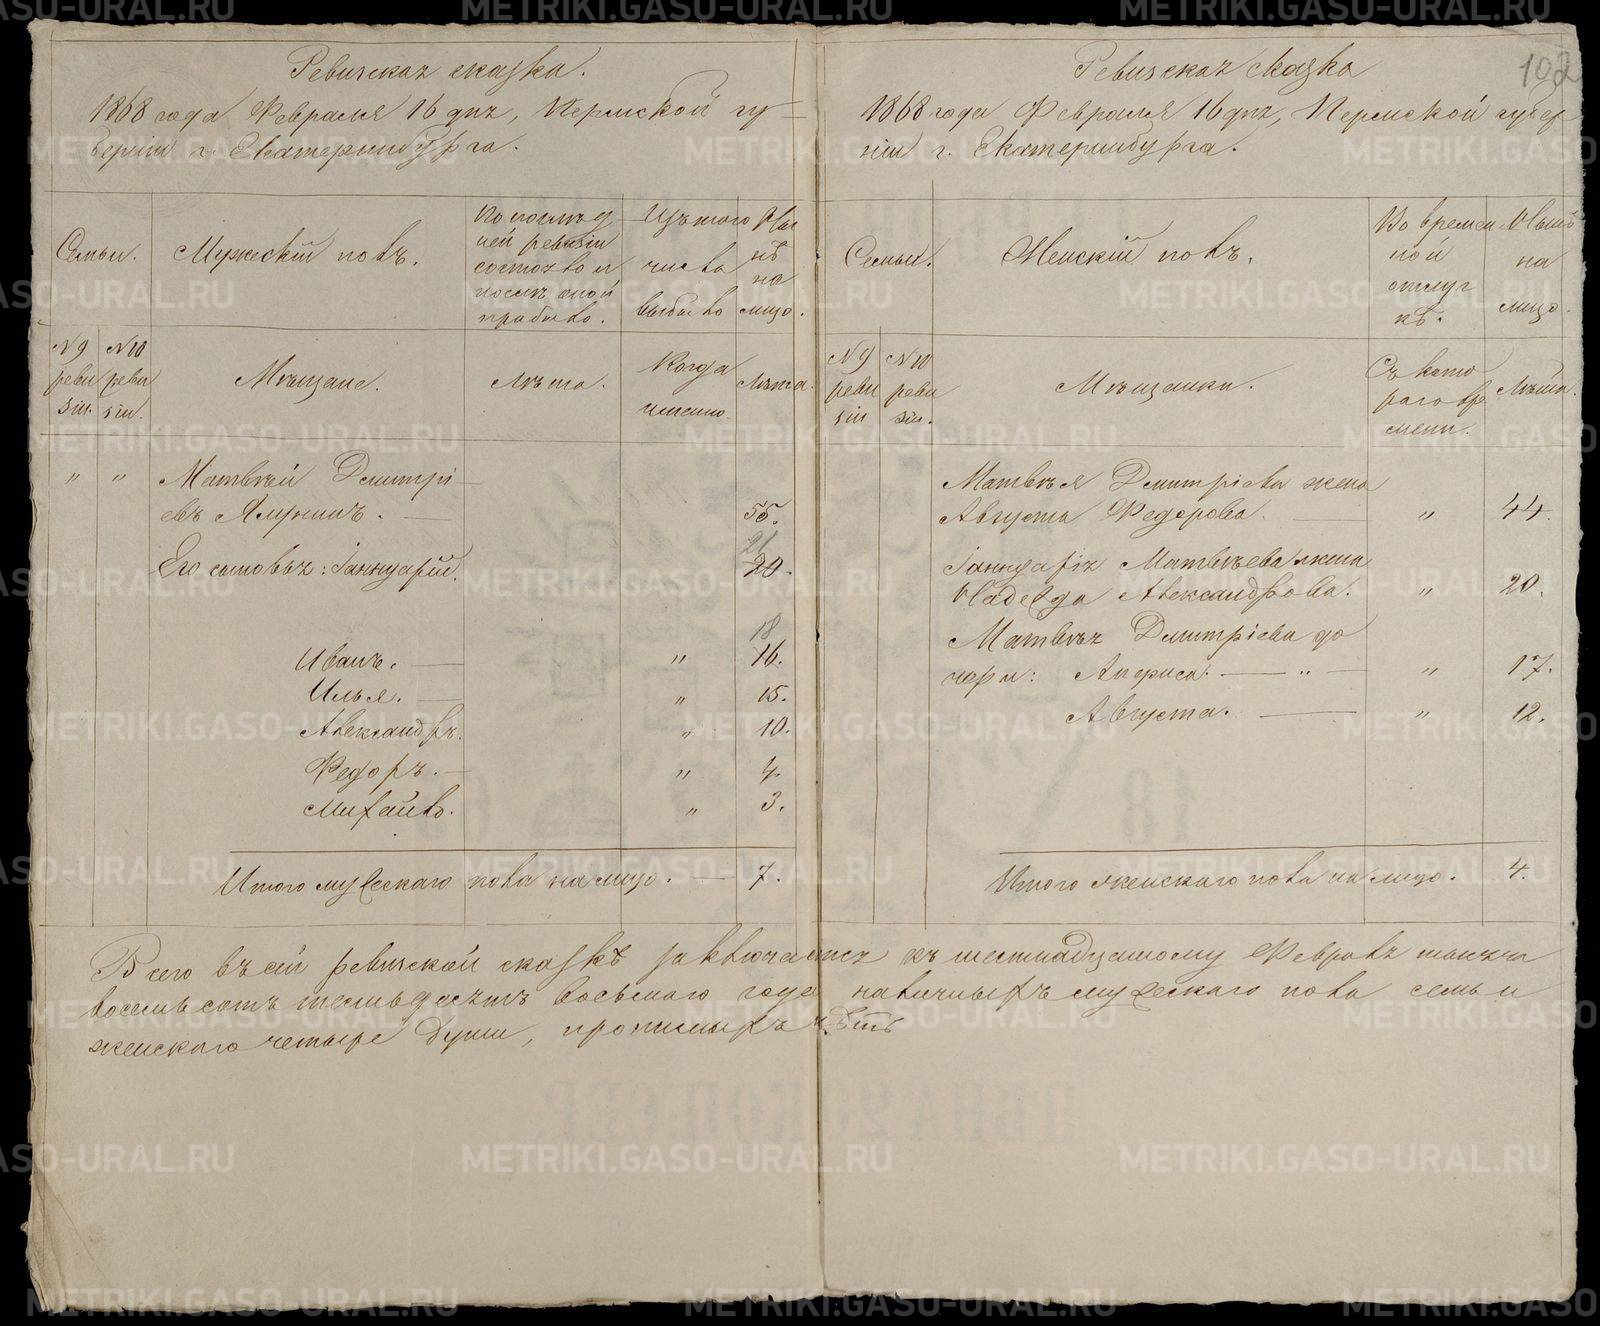 102
Ревизская сказка.
1868 года Февраля 16 дня, Пермской гу-
берніи г. Екатеринбурга.
Семьи.
Мужескій полъ.
По послѣд
ней ревизіи
состояло и
послѣ оной
прибыло.
Изъ того
числа
выбыло
Ны
нѣ
на
лицо.
№ 9
реви
зіи.
№ 10
реви
зіи.
Мѣщане.
Лѣта.
Когда
именно.
Лѣта.
" " Матвѣй Дмитрі-
евъ Ялунинъ. 55.
21
Его сыновья: Іаннуарій. 20.
18
Иванъ. " 16.
Илья. " 15.
Александръ. " 10.
Федоръ. " 4.
Михаилъ. " 3.
Итого мужескаго пола на лицо. 7.
Ревизская Сказка
1868 года Февраля 16 дня, Пермской губер
ніи г. Екатеринбурга.
Семьи.
Женскій полъ.
Во времен
ной
отлуч
кѣ.
Нынѣ
на
лицо.
№ 9
реви
зіи
№ 10
реви
зіи.
Мѣщанки.
Съ кото
раго вре
мени.
Лѣта.
Матвѣя Дмитріева жена
Августа Федорова. " 44.
Іаннуарія Матвѣева жена
Надежда Александрова. " 20.
Матвѣя Дмитріева до
чери: Анфиса. " " 17.
Августа. " 12.
Итого женскаго пола на лицо. 4.
Всего въ сей ревизской сказкѣ заключается къ шестнадцатому Февраля тысяча
восемьсотъ шестьдесятъ восьмаго года наличныхъ мужескаго пола семь и
женскаго четыре души, прописныхъ нѣтъ
METRIKI.GASO-URAL.RU